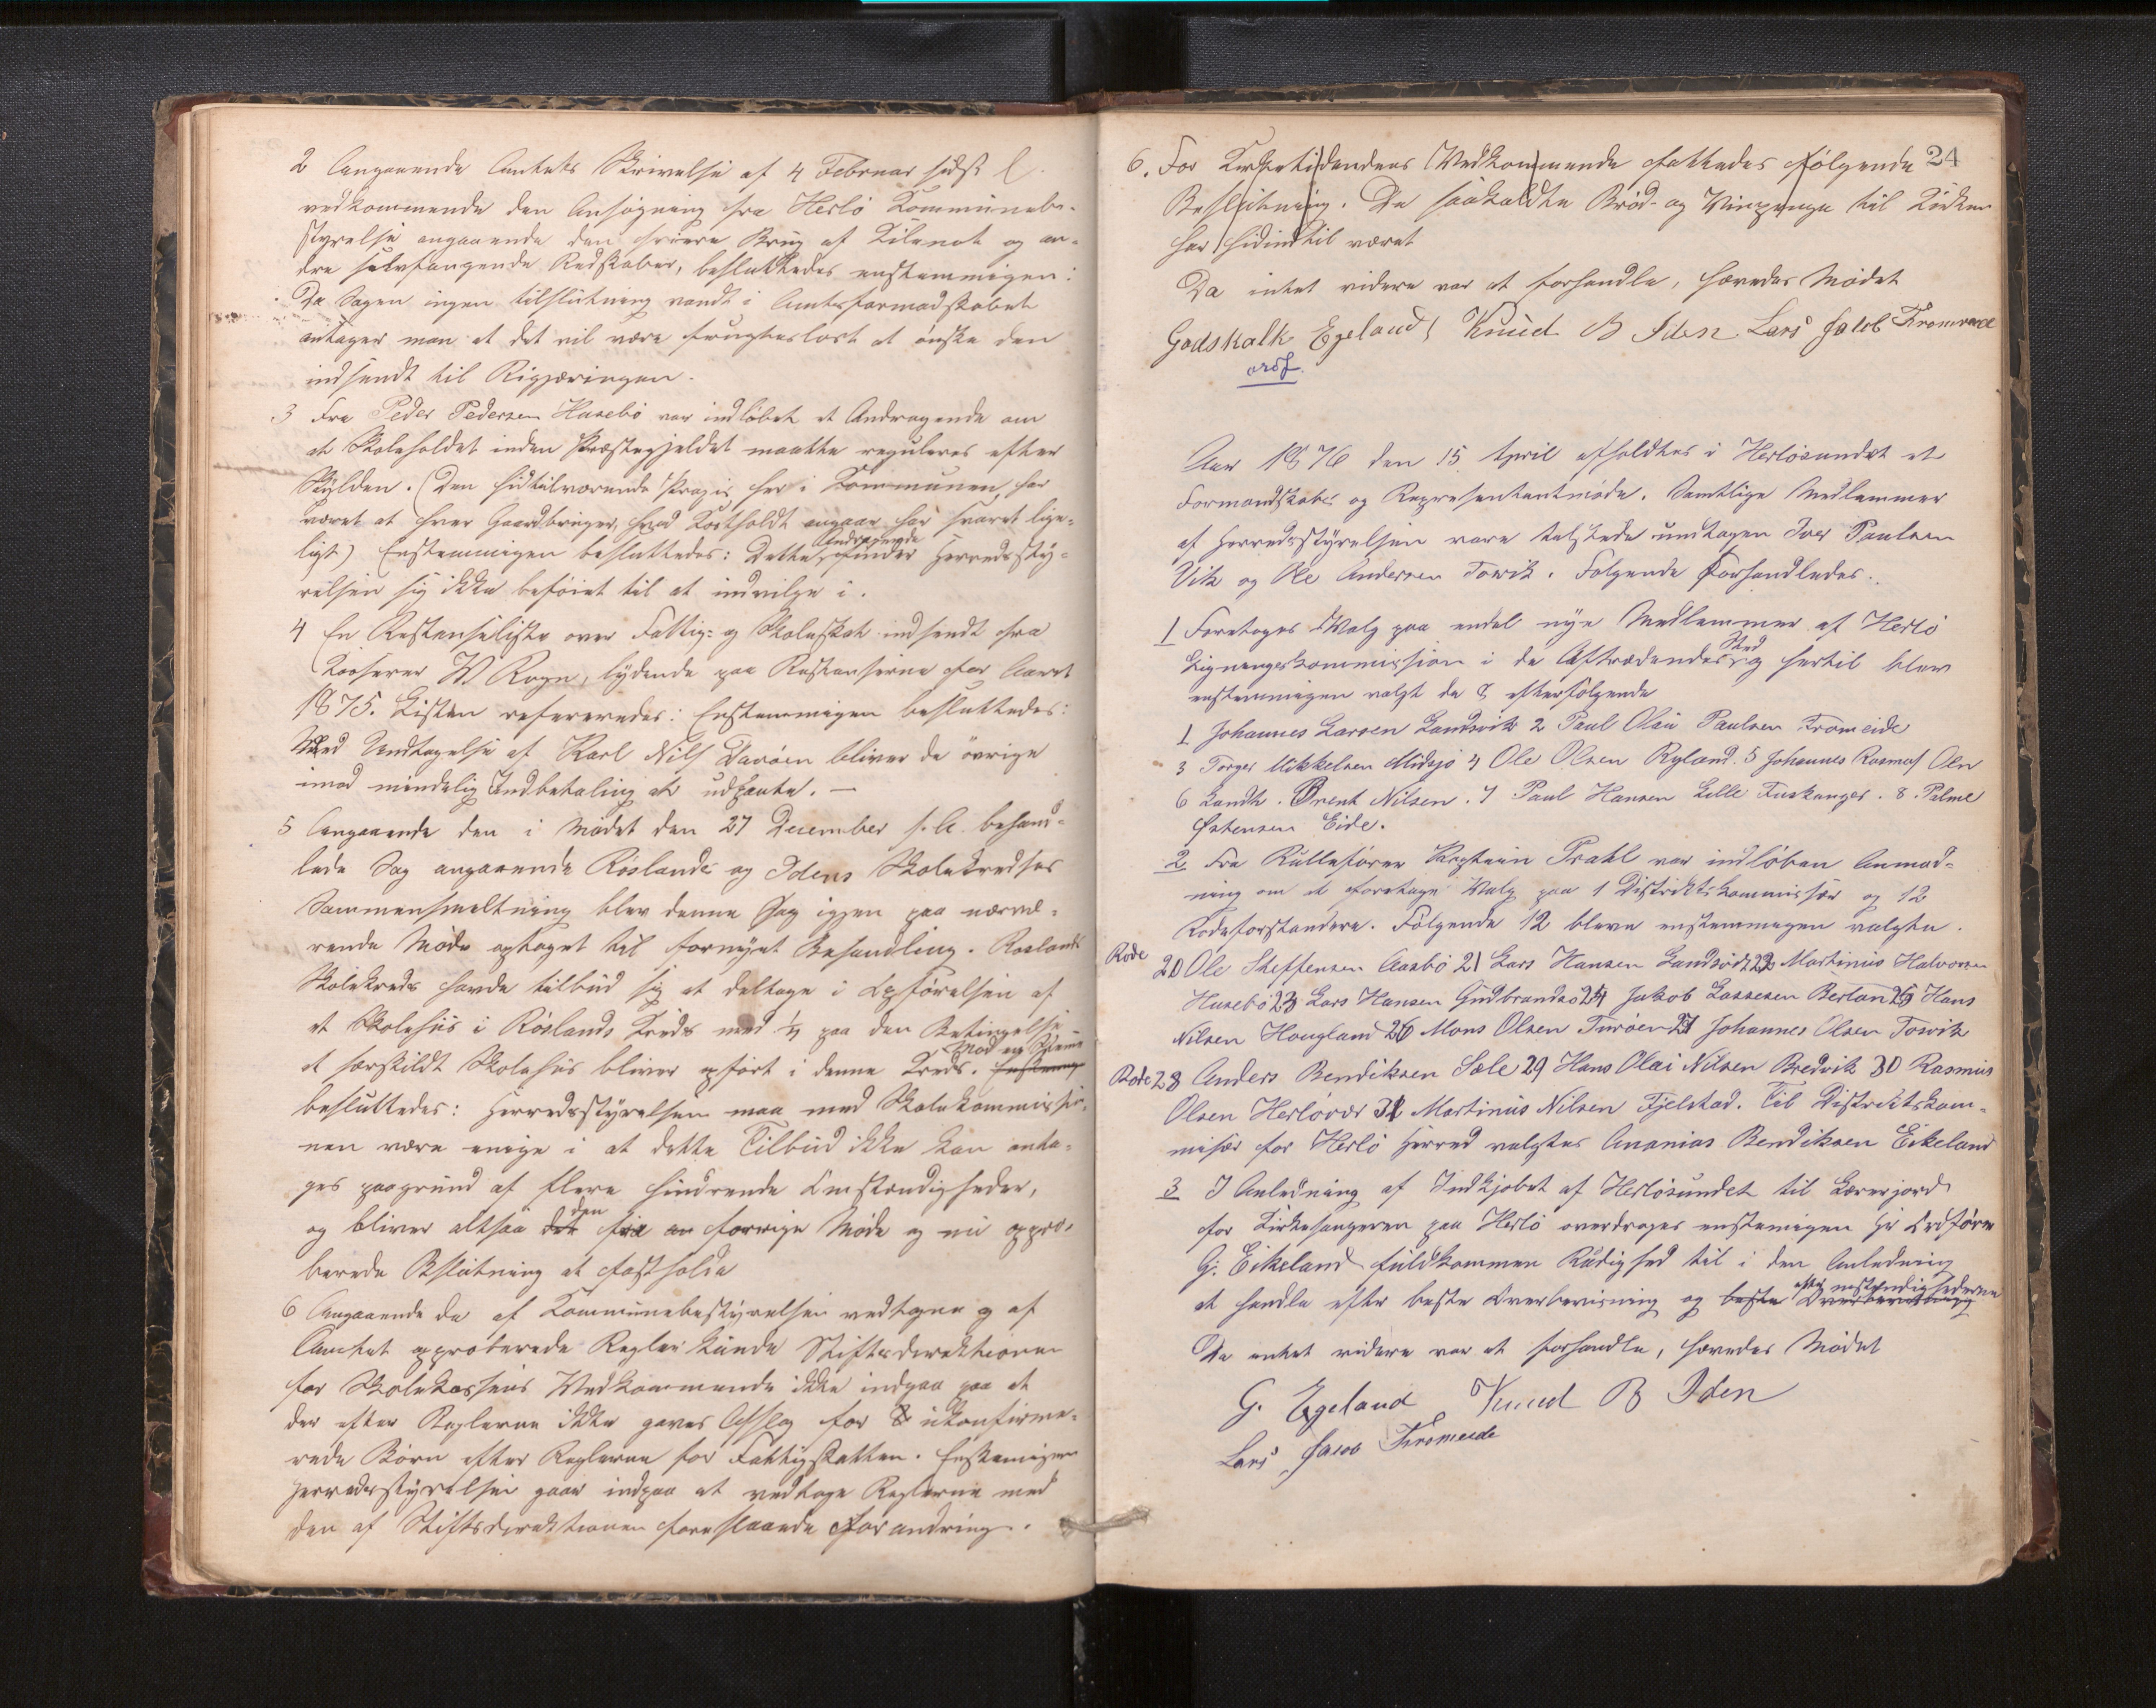 2 Angaaende Amtets Skrivelse af 4 Februar sidst l.
vedkommende den Ansøgning fra Herlø Kommunebe-
styrelse angaaende den friere Brug af Kilenot og an-
dre selvfangende Redskaber, besluttedes enstemmigen:
Da Sagen ingen tilslutning vandt i Amtsformandskabet
antager man at det vil være frugtesløst at ønske den
indsendt til Rigjæringen.
3 Fra Peder Pedersen Husebø var indløbet et Andragende om
at Skoleholdet inden Præstegjeldet maatte reguleres efter
Skylden. (Den hidtilværende Praxis her i Kommunen, har
været at hver Gaardbruger, hvad Kostholdt angaar har svaret lige-
ligt) Enstemmigen besluttedes: Dette Andragende finder Herredssty-
relsen sig ikke beføiet til at indvilge i.
4 En Restanseliste over Fattig- og Skoleskat indsendt fra
Kasserer W Rogn, lydende paa Restanserne for Aaret
1875. Listen refereredes: Enstemmigen besluttedes:
Med Undtagelse af Karl Nils Davøen bliver de øvrige
imod mindelig Indbetaling at udpante. —
5 Angaaende den i Mødet den 27 December f. A. behand-
lede Sag angaaende Røslands og Idens Skolekredses
Sammensmeltning blev denne Sag igjen paa nærvæ-
rende Møde optaget til fornyet Behandling. Roslands
Skolekreds havde tilbud sig at deltage i Opførelsen af
et Skolehus i Røslands Kreds med ¼ paa den Betingelse
at særskildt Skolehus bliver opført i denne Kreds. Mod en Stemme
besluttedes: Herredsstyrelsen maa med Skolekommissio-
nen være enige i at dette Tilbud ikke kan anta-
ges paagrund af flere hindrende Omstændigheder,
og bliver altsaa den fra forrige Møde og nu appro-
berede Beslutning at fastholde
6 Angaaende de af Kommunebestyrelsen vedtagne og af
Amtet approberede Regler kunde Stiftsdirektionen
for Skolekassens Vedkommende ikke indgaa paa at
der efter Reglerne ikke gaves Afslag for ukonfirme-
rede Børn efter Reglerne for Fattigskatten. Enstemmigen
Herredsstyrelsen gaar indpaa at vedtage Reglerne med
den af Stiftsdirektionen foreslaaede Forandring.
24
6. For Kirketidendens Vedkommende fattedes følgende
Beslutning. De saakaldte Brød- og Vinpenge til Kirken
har hidindtil været
Da intet videre var at forhandle, hævedes Mødet
Godskalk Egeland Knud B Iden Lars Jakob Fromreide
ordf.
Aar 1876 den 15 April afholdtes i Herløsundet et
Formandskabs og Representantmøde. Samtlige Medlemmer
af Herredsstyrelsen vare tilstede undtagen Iver Paulsen
Vik og Ole Andersen Towik. Følgende Forhandledes.
1 Foretoges Valg paa endel nye Medlemmer af Herlø
Ligningskommission i de Aftrædendes Sted og hertil blev
enstemmigen valgt de 8 efterfølgende
1 Johannes Larsen Landsvik 2 Paul Olai Paulsen Fromeide
3 Torger Mikkelsen Midsjø 4 Ole Olsen Ryland. 5 Johannes Rasmus Oen
6 Landh. Brent Nilsen. 7 Paul Hansen Lille Fuskanger. 8. Palme
Østensen Eide.
2 Fra Rulleføren Kaptein Prahl var indløben Anmod-
ning om at foretage Valg paa 1 Distriktskommissær og 12
Rodeforstandere. Følgende 12 bleve enstemmigen valgte.
Rode 20 Ole Steffensen Aasbø 21 Lars Hansen Landsvik 22 Martinus Halvorsen
Husebø 23 Lars Hansen Gudbrandsø 24 Jakob Lassesen Berland 25 Hans
Nilsen Hougland 26 Mons Olsen Turøen 27 Johannes Olsen Towik
Rode 28 Anders Bendiksen Sæle 29 Hans Olai Nilsen Bredvik 30 Rasmus
Olsen Herløvær 31 Martinus Nilsen Fjelstad. Til Distriktskom-
misær for Herlø Herred valgtes Ananias Bendiksen Eikeland
3 I Anledning af Indkjøbet af Herløsundet til Lærerjord
for Kirkesangeren paa Herlø overdroges enstemigen Hr Ordfører
G. Eikeland fuldkommen Raadighed til i den Anledning
at handle efter beste Overbevisning og efter omstændighederne
Da intet videre var at forhandle, hævedes Mødet
G. Egeland Knud B Iden
Lars Jacob Fromreide